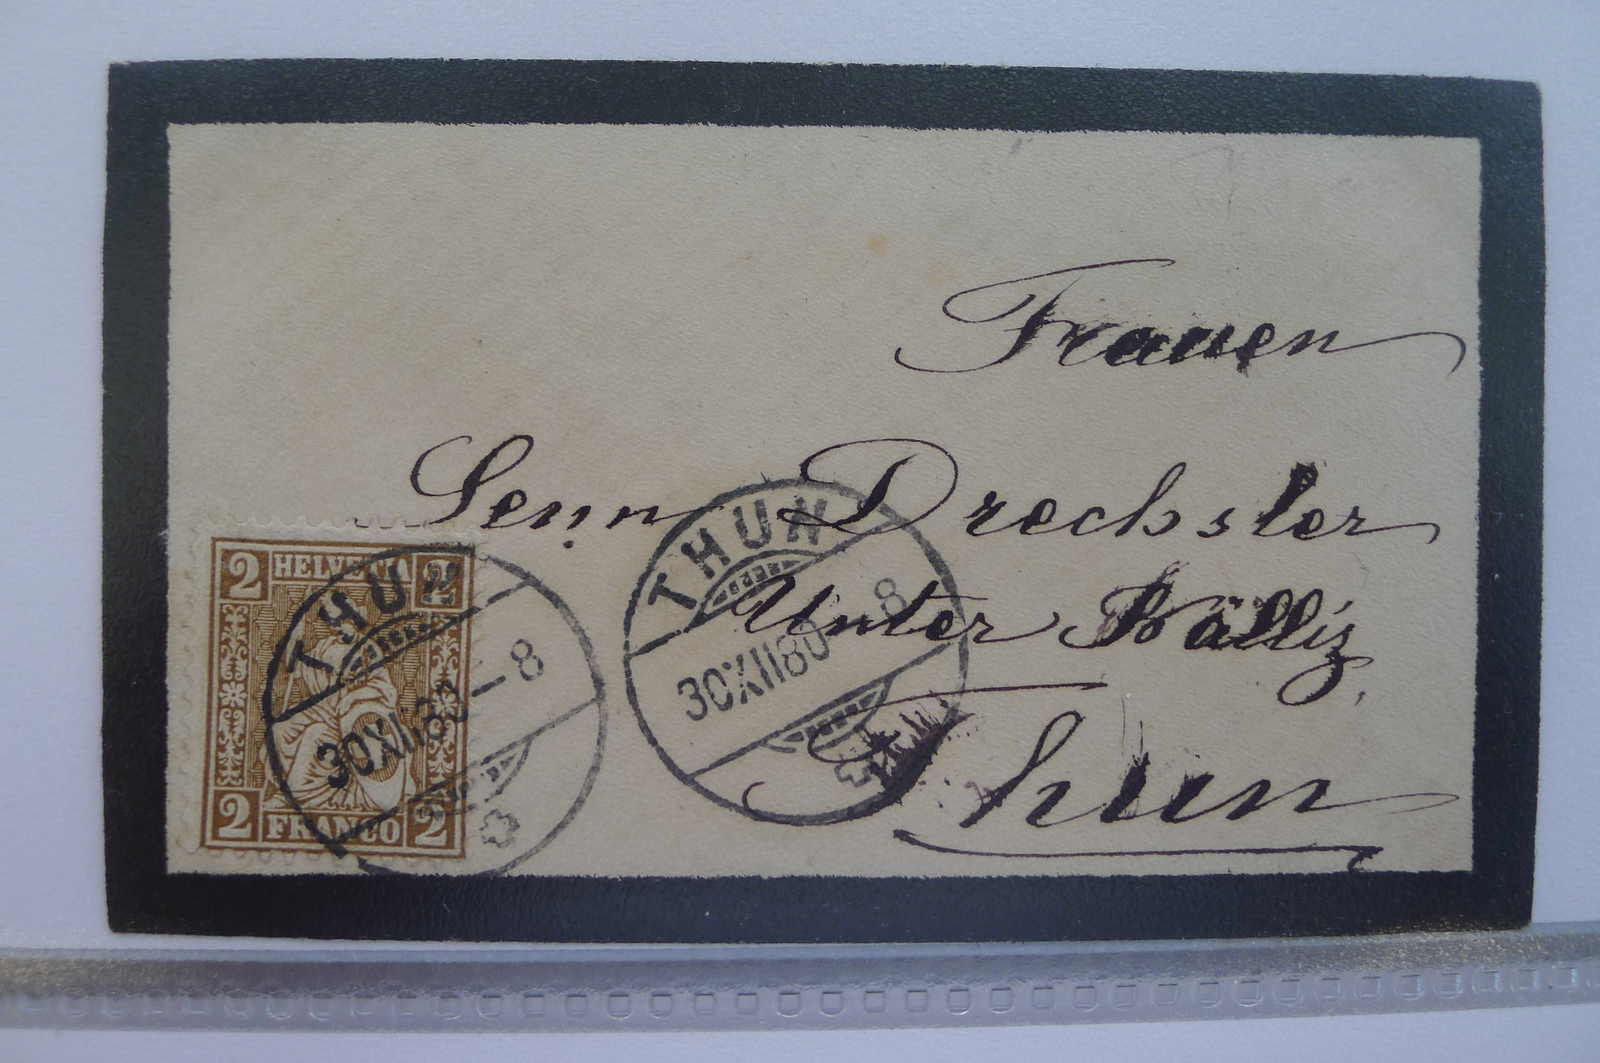 Frauen
Senn Drechsler
Unter Bälliz
Thun
2 HELVETIA 2
2 FRANCO 2
THUN
30XII80–8
THUN
30XII80–8